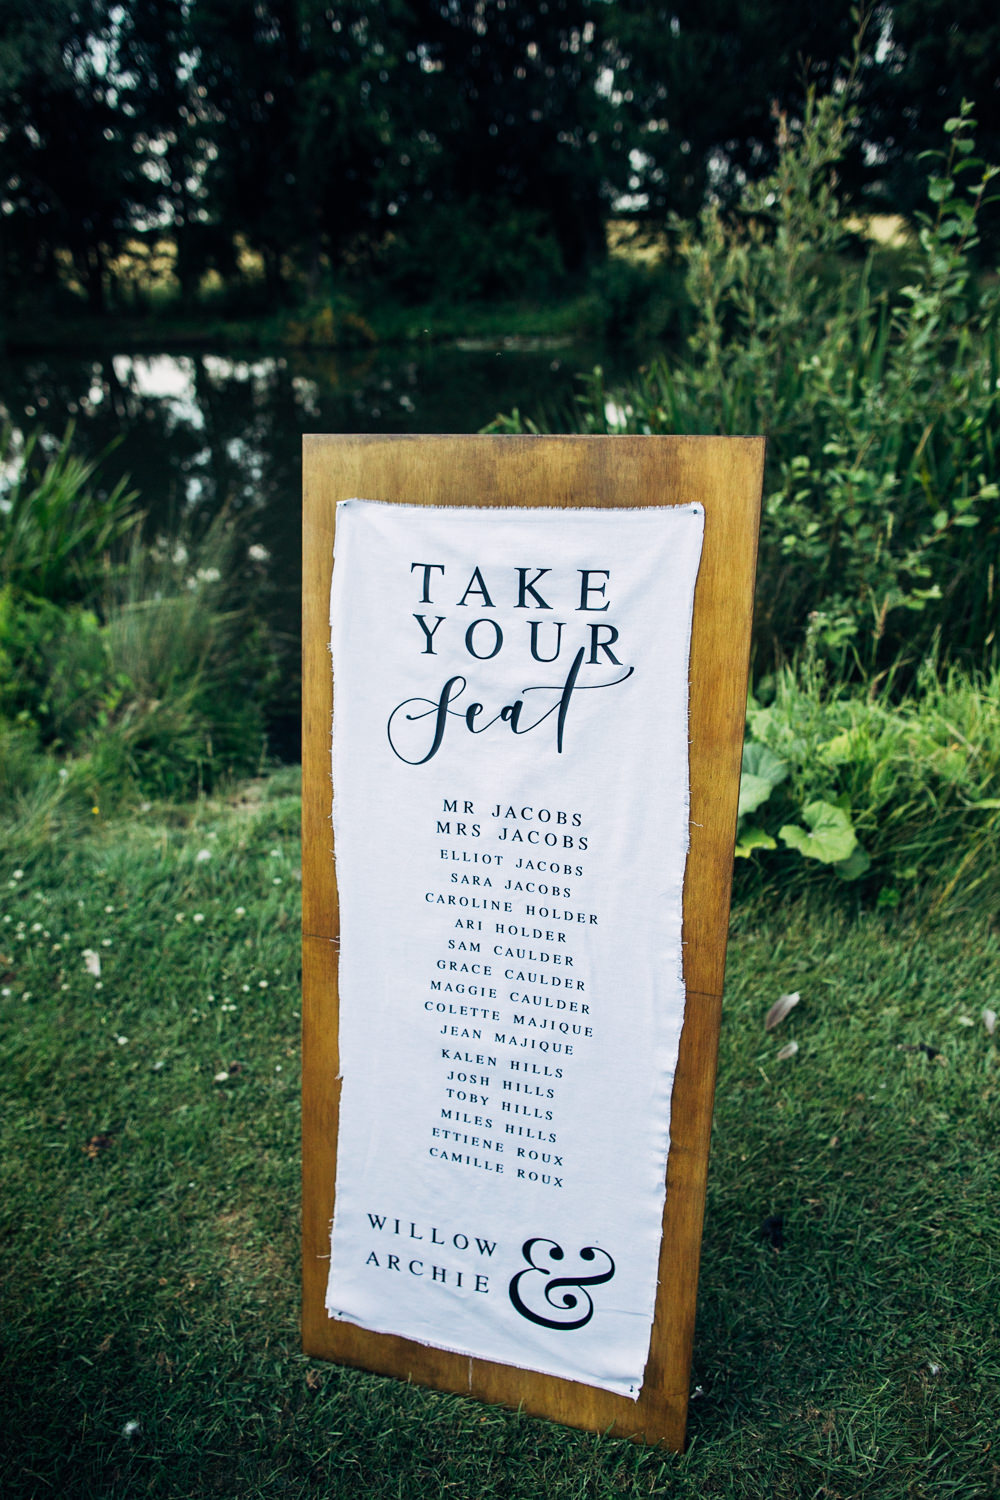 TAKE
YOUR
Seat
MR JACOBS
MRS JACOBS
ELLIOT JACOBS
SARA JACOBS
CAROLINE HOLDER
ARI HOLDER
SAM CAULDER
GRACE CAULDER
MAGGIE CAULDER
COLETTE MAJIQUE
JEAN MAJIQUE
KALEN HILLS
JOSH HILLS
TOBY HILLS
MILES HILLS
ETTIENE ROUX
CAMILLE ROUX
WILLOW
&
ARCHIE